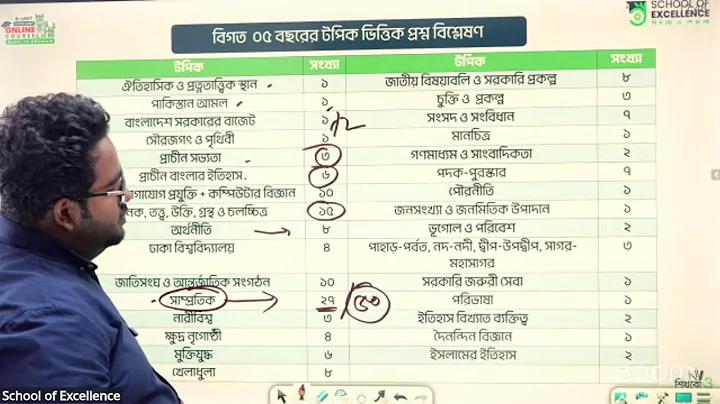 B-UNIT
ONLINE
COURSE
SCHOOL OF
EXCELLENCE
বিগত ০৫ বছরের টপিক ভিত্তিক প্রশ্ন বিশ্লেষণ
টপিক সংখ্যা টপিক সংখ্যা
ঐতিহাসিক ও প্রত্নতাত্ত্বিক স্থান ১ জাতীয় বিষয়াবলি ও সরকারি প্রকল্প ৮
পাকিস্তান আমল ১ চুক্তি ও প্রকল্প ৩
বাংলাদেশ সরকারের বাজেট ১ সংসদ ও সংবিধান ৭
সৌরজগৎ ও পৃথিবী ১ মানচিত্র ১
প্রাচীন সভ্যতা ৩ গণমাধ্যম ও সাংবাদিকতা ২
প্রাচীন বাংলার ইতিহাস ৬ পদক-পুরস্কার ৭
প্রযুক্তি + কম্পিউটার বিজ্ঞান ১০ পৌরনীতি ১
তত্ত্ব, উক্তি, গ্রন্থ ও চলচ্চিত্র ১৫ জনসংখ্যা ও জনমিতিক উপাদান ১
অর্থনীতি ৮ ভূগোল ও পরিবেশ ২
ঢাকা বিশ্ববিদ্যালয় ৪ পাহাড়-পর্বত, নদ-নদী, দ্বীপ-উপদ্বীপ, সাগর-মহাসাগর ৩
জাতিসংঘ ও আন্তর্জাতিক সংগঠন ১০ সরকারি জরুরী সেবা ১
সাম্প্রতিক ২৭ পরিভাষা ১
নারীবিশ্ব ৩ ইতিহাস বিখ্যাত ব্যক্তিত্ব ২
ক্ষুদ্র নৃগোষ্ঠী ৪ দৈনন্দিন বিজ্ঞান ১
মুক্তিযুদ্ধ ৬ ইসলামের ইতিহাস ২
খেলাধুলা ৮
zoom
School of Excellence